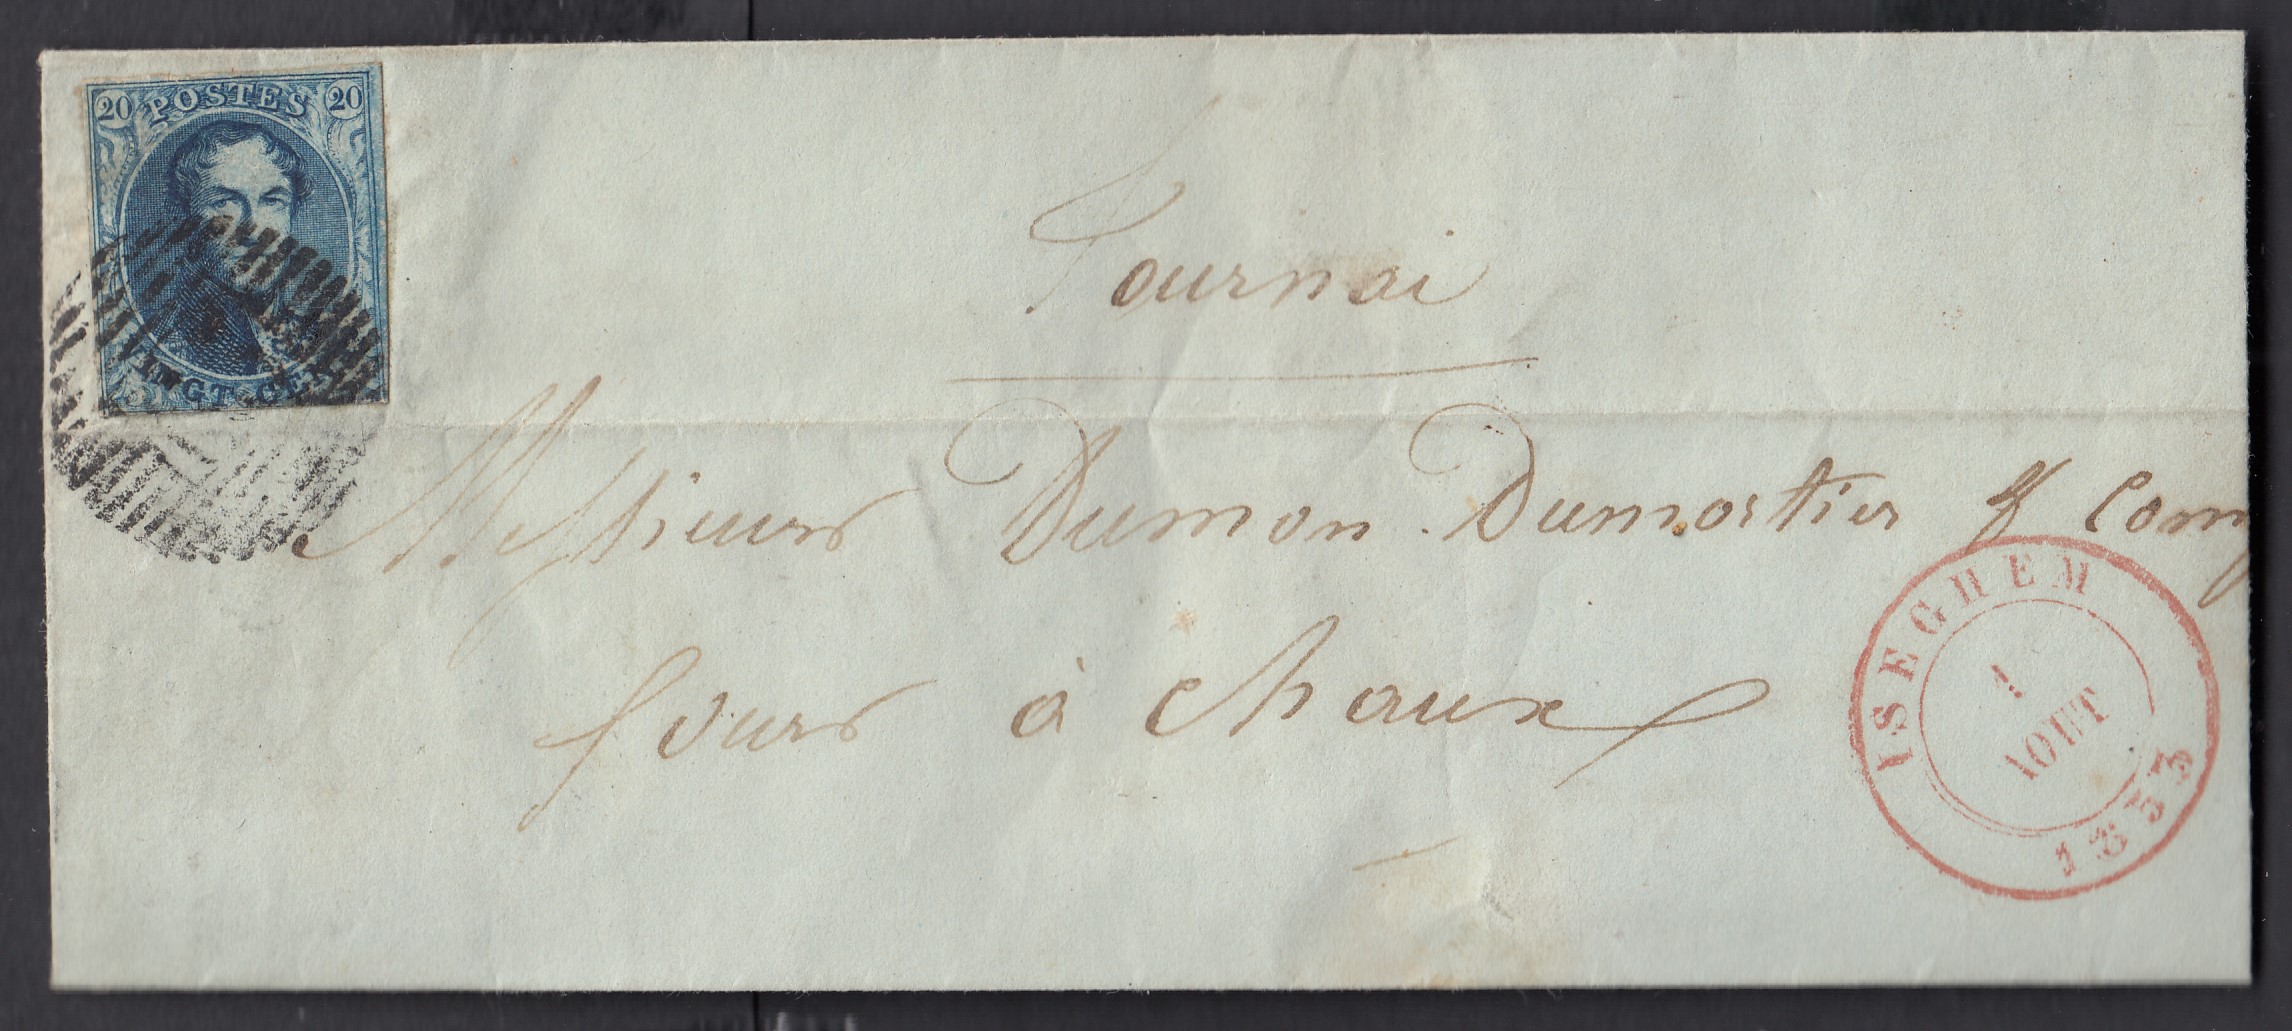 20 POSTES 20
VINGT CE
Tournai
Messieurs Dumon-Dumortier & Comp
fours à chaux
ISEGHEM
1
AOUT
1853